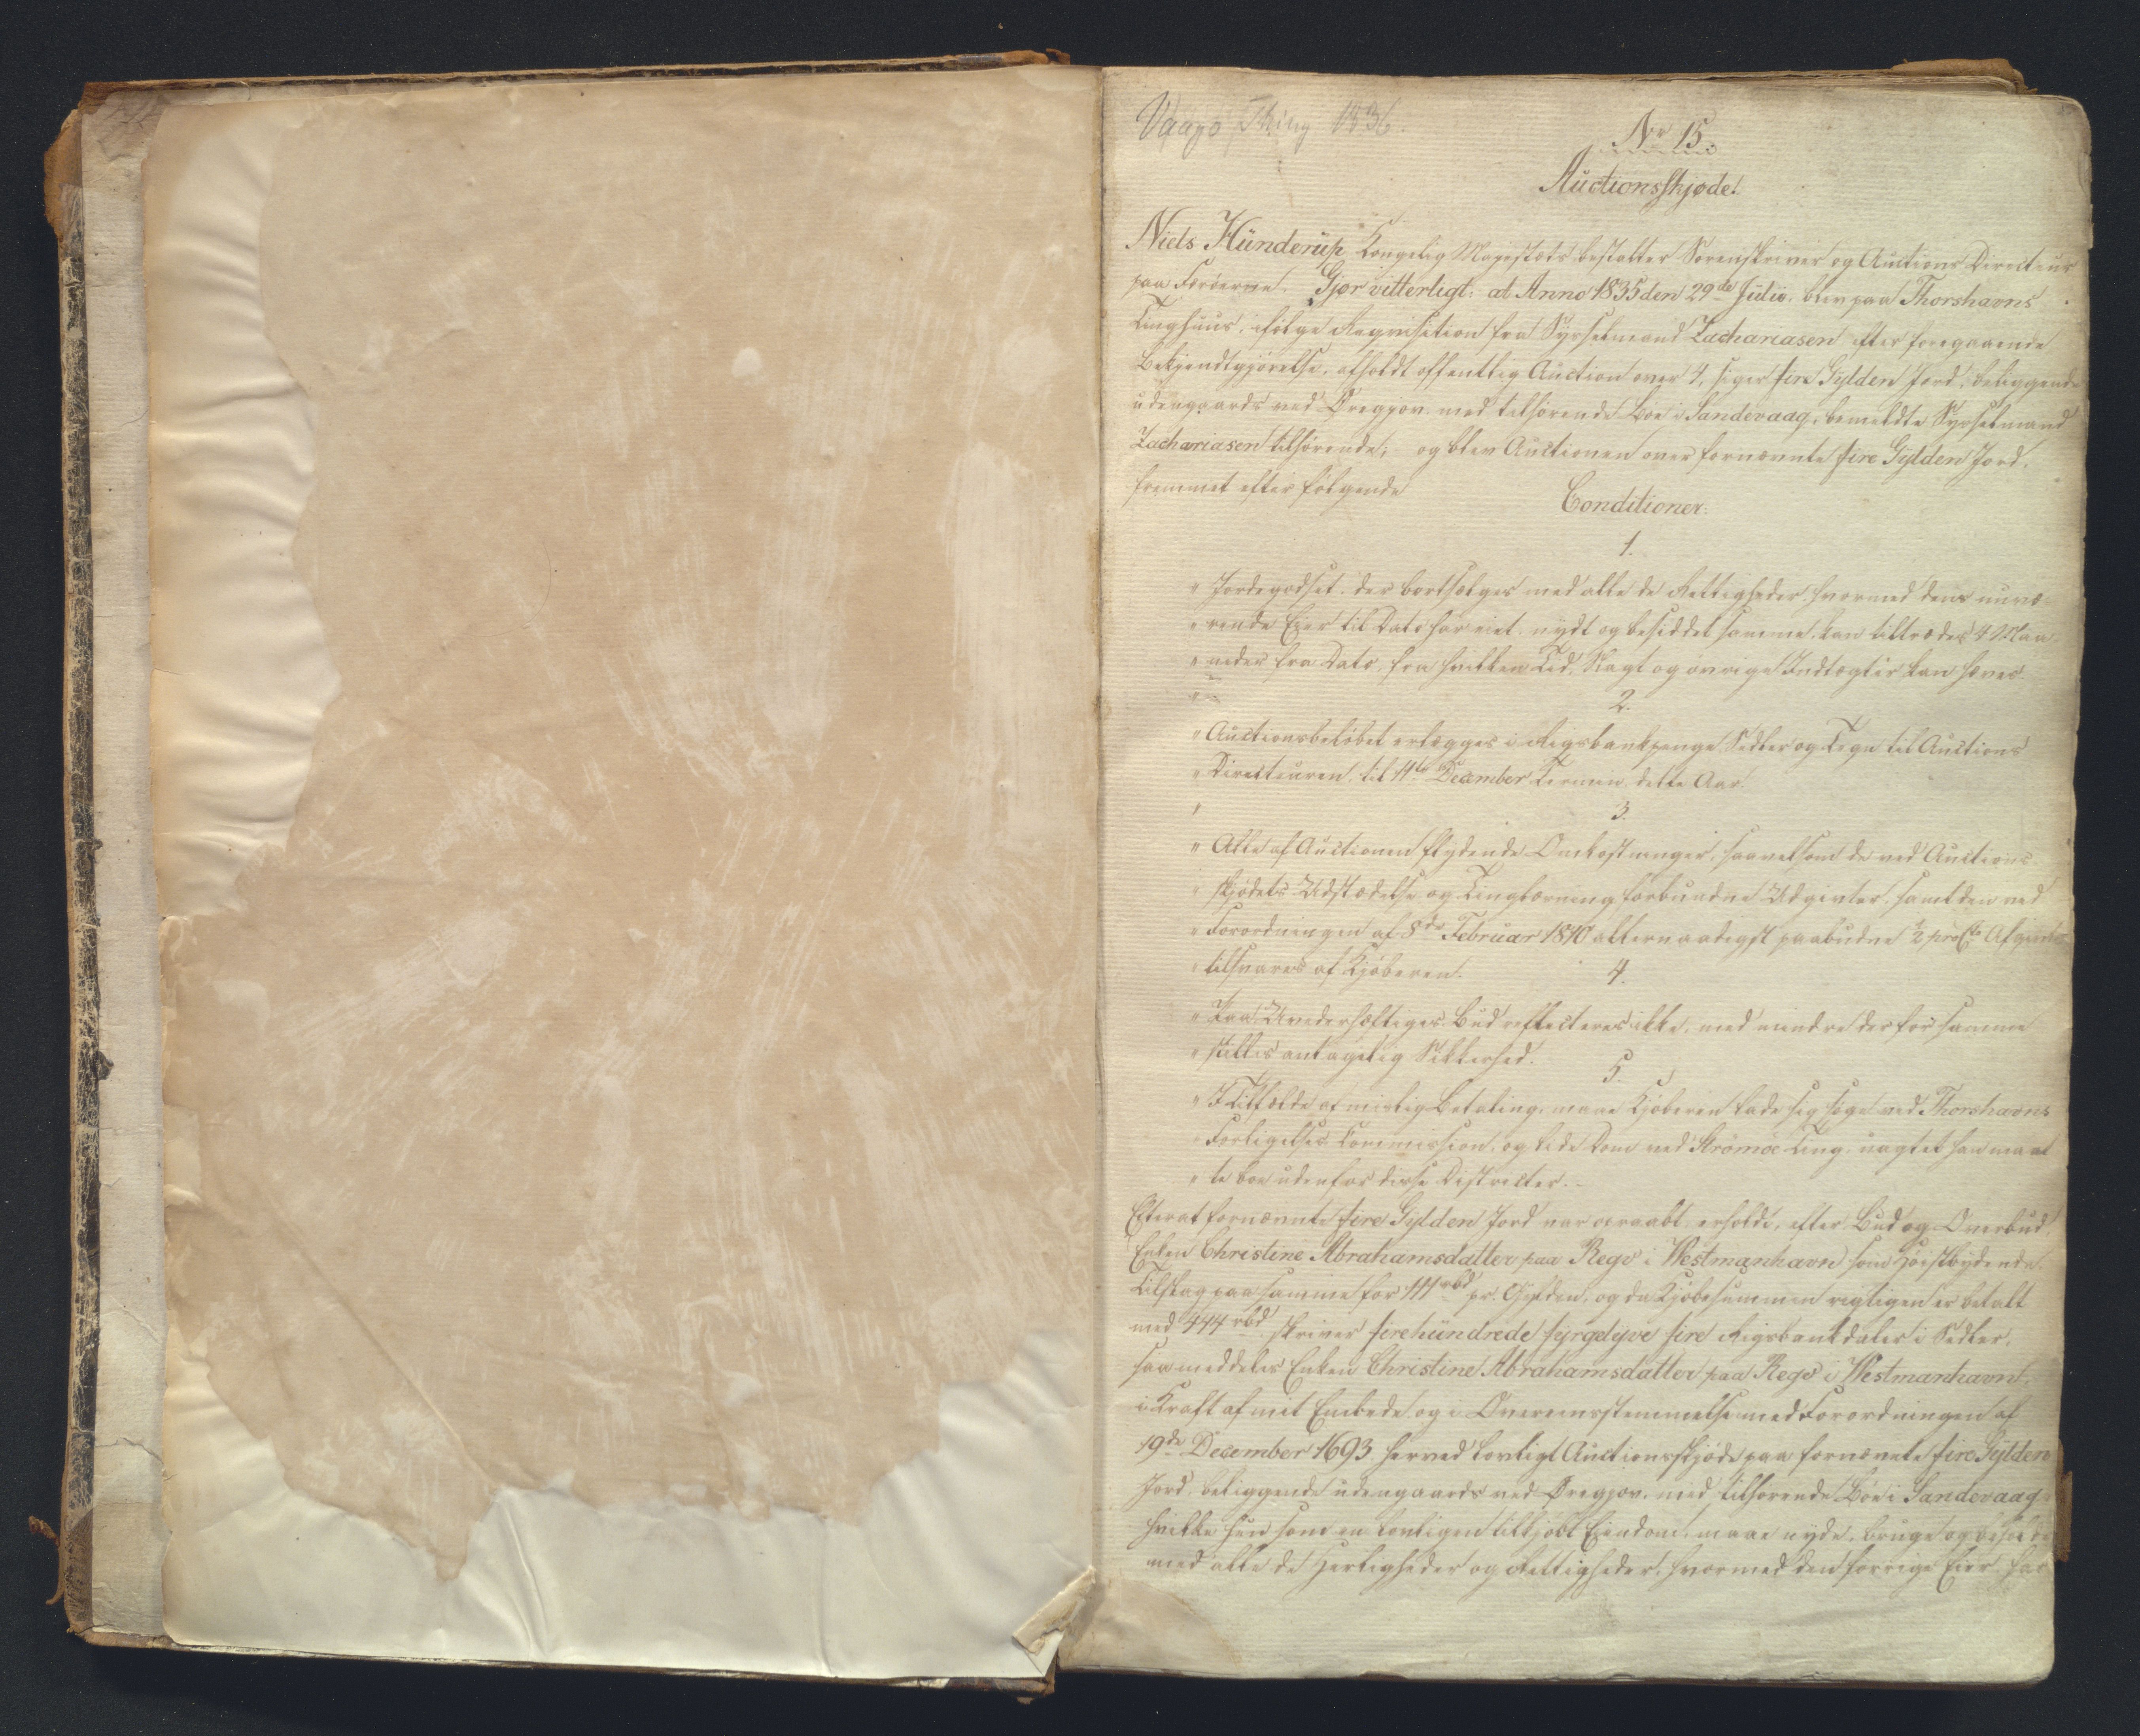 Vaagø Thing 1836.
Nr 15.
Auctionsskjøde!
Niels Hünderup Kongelig Mayestæts bestalter Sorenskriver og Auctions Directeur
paa Færöerne. Gjør vitterligt: at Anno 1835 den 29de Julii, blev paa Thorshavns
Tinghuus, ifølge Reqvisition fra Sysselmand Zachariasen efter foregaaende
Bekjendtgjørelse, afholdt offentlig Auction over 4, siger fire Gylden Jord, beliggende
udengaards ved Øregjov med tilhørende Boe i Sandevaag, bemeldte Sysselmand
Zachariasen tilhørende; og blev Auctionen over fornævnte fire Gylden Jord,
fremmet efter følgende
Conditioner:
1.
" Jordegodset, der bortsælges med alle de Rettigheder, hvormed dens nuvæ-
" rende Eier til Dato har eiet, nydt og besiddet samme, kan tiltrædes 4 Maa-
" neder fra Dato, fra hvilken Tid, Slagt og øvrige Indtægter kan hæves.
2.
" Auctionsbeløbet erlægges i Rigsbankpenge Sedler og Tegn til Auctions
" Directeuren, til 11te December Termin dette Aar.
"
3.
" Alle af Auctionen flydende Omkostninger, saavelsom de ved Auctions-
" skjødets Udstædelse og Tinglæsning forbundne Udgivter, samt den ved
" Forordningen af 8de Februar 1810 allernaadigst paabudne ½ proCto Afgivt
" tilsvares af Kjøberen.
4.
" Paa Uvederhæftiges Bud reflecteres ikke, med mindre der for samme
" stilles antagelig Sikkerhed.
5.
" I Tilfælde af mislig Betaling, maae Kjøberen lade sig søge ved Thorshavns
" Forligelses Commission, og lide Dom ved Strømøe Ting, uagtet han maat-
" te boe udenfor disse Districter.
Efterat fornævnte fire Gylden Jord var opraabt, erholdt, efter Bud og Overbud
Enken Christine Abrahamsdatter paa Rego i Westmanhavn som Høistbydende
Tilslag paa samme for 111 rbd pr. Gylden, og da Kjøbesummen rigtigen er betalt
med 444 rbd skriver firehundrede fyrgetyve fire Rigsbankdaler i Sedler,
saa meddeles Enken Christine Abrahamsdatter paa Rego i Westmanhavn,
i Kraft af mit Embede og i Overeensstemmelse med Forordningen af
19de December 1693 herved lovligt Auctionsskjøde paa fornævnte fire Gylden
Jord, beliggende udengaards ved Øregjov, med tilhørende Boe i Sandevaag
hvilke hun som en lovligen tilkjøbt Eiendom, maae nyde, bruge og beholde
med alle de Herligheder og Rettigheder, hvormed den forrige Eier har